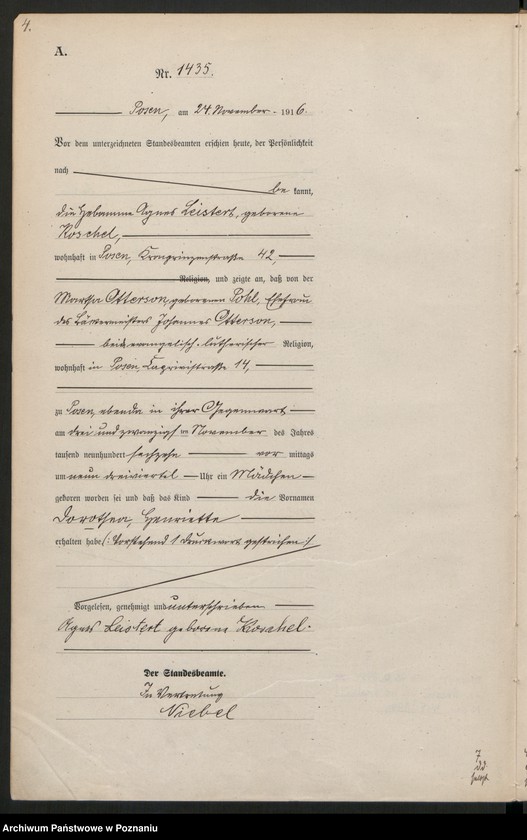 4.
A.
Nr. 1435.
Posen, am 24. November 1916.
Vor dem unterzeichneten Standesbeamten erschien heute, der Persönlichkeit
nach
be kannt,
die Hebamme Agnes Leistert, geborene
Koschel,
wohnhaft in Posen, Kronprinzenstraße 42,
Religion, und zeigte an, daß von der
Martha Otterson, geborenen Pohl, Ehefrau
des Bäckermeisters Johannes Otterson,
beide evangelisch-lutherischer Religion,
wohnhaft in Posen, Caprivistraße 14,
zu Posen, ebenda in ihrer Gegenwart
am drei und zwanzigsten November des Jahres
tausend neunhundert sechzehn vor mittags
um neun dreiviertel Uhr ein Mädchen
geboren worden sei und daß das Kind die Vornamen
Dorothea, Henriette
erhalten habe (: Vorstehend 1 Druckwort gestrichen :)
Vorgelesen, genehmigt und unterschrieben
Agnes Leistert geborene Koschel.
Der Standesbeamte.
In Vertretung
Niebel
Archiwum Państwowe w Poznaniu